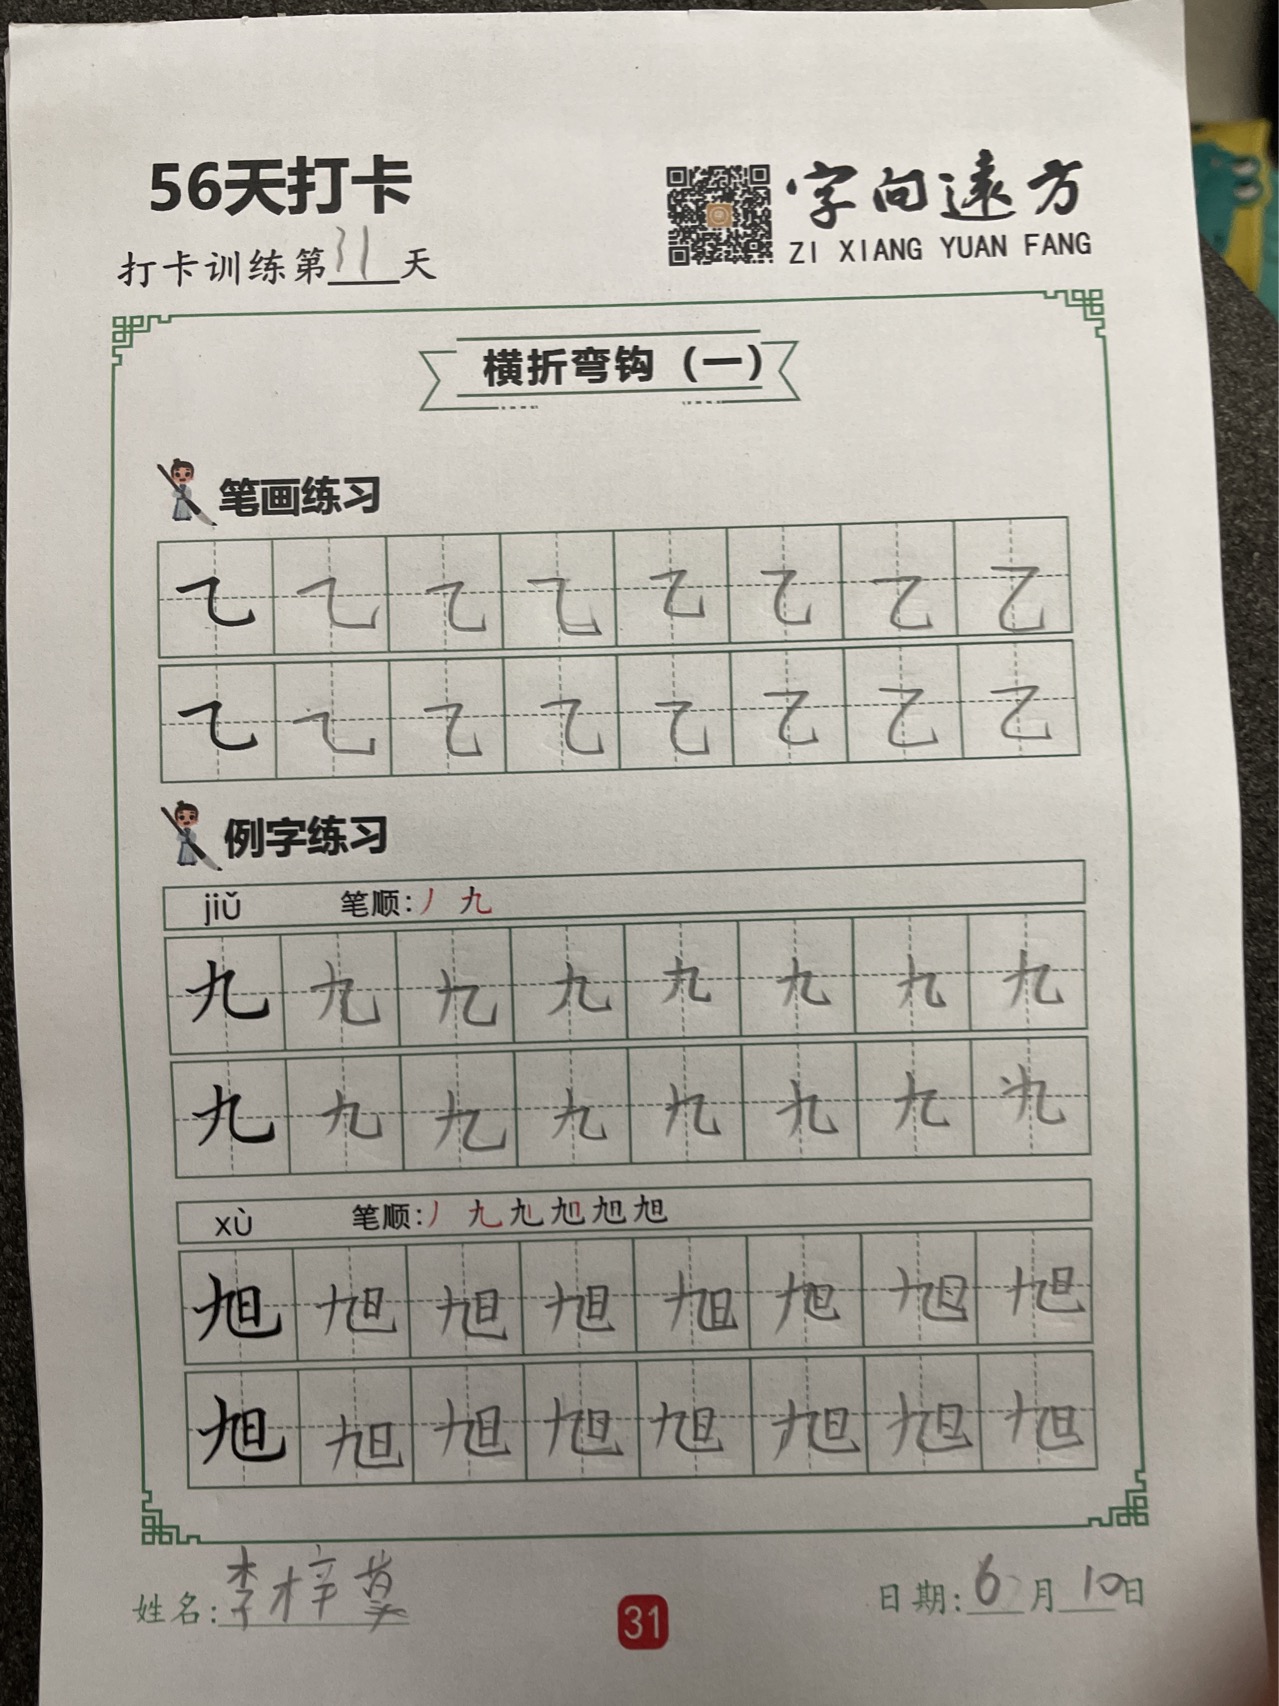 56天打卡
字向遠方
ZI XIANG YUAN FANG
打卡训练第31天
横折弯钩（一）
笔画练习
乙 乙 乙 乙 乙 乙 乙 乙
乙 乙 乙 乙 乙 乙 乙 乙
例字练习
jiǔ 笔顺：丿 九
九 九 九 九 九 九 九 九
九 九 九 九 九 九 九 九
xù 笔顺：丿 九 九 旭 旭 旭
旭 旭 旭 旭 旭 旭 旭 旭
旭 旭 旭 旭 旭 旭 旭 旭
姓名：李梓
31
日期：6月10日